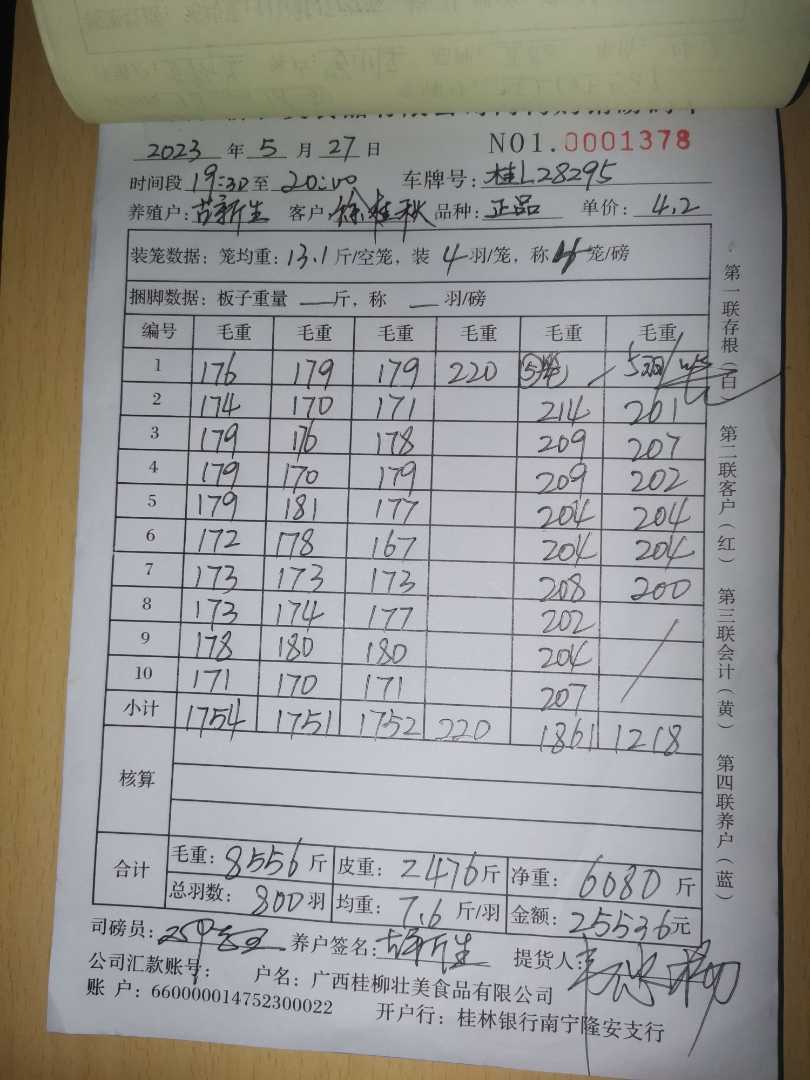 NO1.0001378
2023 年 5 月 27 日
时间段 19:30 至 20:00 车牌号: 桂L28295
养殖户: 古新生 客户: 徐桂秋 品种: 正品 单价: 4.2
装笼数据: 笼均重: 13.1 斤/空笼, 装 4 羽/笼, 称 笼/磅
捆脚数据: 板子重量 — 斤, 称 — 羽/磅
编号 毛重 毛重 毛重 毛重 毛重 毛重
1 176 179 179 220 5羽
2 174 170 171 214 201
3 179 176 178 209 207
4 179 170 179 209 202
5 179 181 177 204 204
6 172 178 167 204 204
7 173 173 173 208 200
8 173 174 177 202
9 178 180 180 204
10 171 170 171 207
小计 1754 1751 1752 220 1861 1218
核算
合计 毛重: 8556 斤 皮重: 2476 斤 净重: 6080 斤
总羽数: 800 羽 均重: 7.6 斤/羽 金额: 25536 元
司磅员: 养户签名: 古新生 提货人:
公司汇款账号: 户名: 广西桂柳壮美食品有限公司
账 户: 660000014752300022 开户行: 桂林银行南宁隆安支行
第一联存根(白) 第二联客户(红) 第三联会计(黄) 第四联养户(蓝)